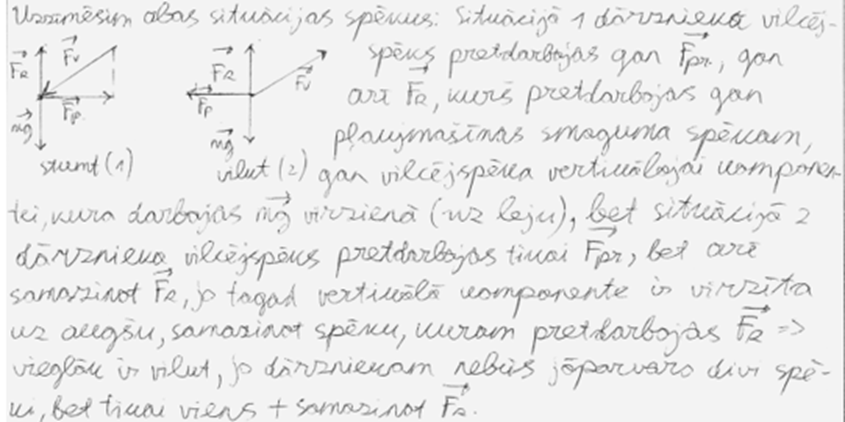 Uzzīmēsim abas situācijas spēkus: Situācijā 1 dārznieka vilcēj-
F_R F_v F_R F_v spēks pretdarbojas gan F_pr, gan
F_pr. F_p arī F_R, kurš pretdarbojas gan
mg mg pļaujmašīnas smaguma spēkam,
stumt (1) vilkt (2) gan vilcējspēka vertikālajai komponen-
tei, kura darbojas mg virzienā (uz leju), bet situācijā 2
dārznieka vilcējspēks pretdarbojas tikai F_pr, bet arī
samazinot F_R, jo tagad vertikālā komponente ir virzīta
uz augšu, samazinot spēku, kuram pretdarbojas F_R =>
vieglāk ir vilkt, jo dārzniekam nebūs jāpārvaro divi spē-
ki, bet tikai viens + samazinot F_R.